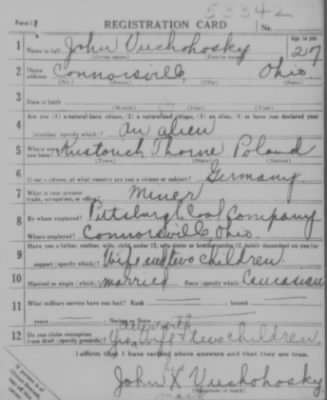 53342
Form 1
REGISTRATION CARD No.
1 Name in full John Vuchohosky Age, in yrs. 27
(Given name) (Family name)
2 Home address Connorsville Ohio.
(No.) (Street) (City) (State)
3 Date of birth
(Month) (Day) (Year)
4 Are you (1) a natural-born citizen, (2) a naturalized citizen, (3) an alien, (4) or have you declared your
intention (specify which)? an alien
5 Where were you born? Thorne Poland
(Town) (State) (Nation)
6 If not a citizen, of what country are you a citizen or subject? Germany
7 What is your present trade, occupation, or office? Miner
8 By whom employed? Pittsburgh Coal Company
Where employed? Connorsville Ohio.
9 Have you a father, mother, wife, child under 12, or a sister or brother under 12, solely dependent on you for
support (specify which)? Wife and two children.
10 Married or single (which)? married Race (specify which)? Caucasian
11 What military service have you had? Rank ; branch
years ; Nation or State
12 Do you claim exemption from draft (specify grounds)? Yes, wife & two children.
I affirm that I have verified above answers and that they are true.
John X Vuchohosky
mark
(Signature or mark)